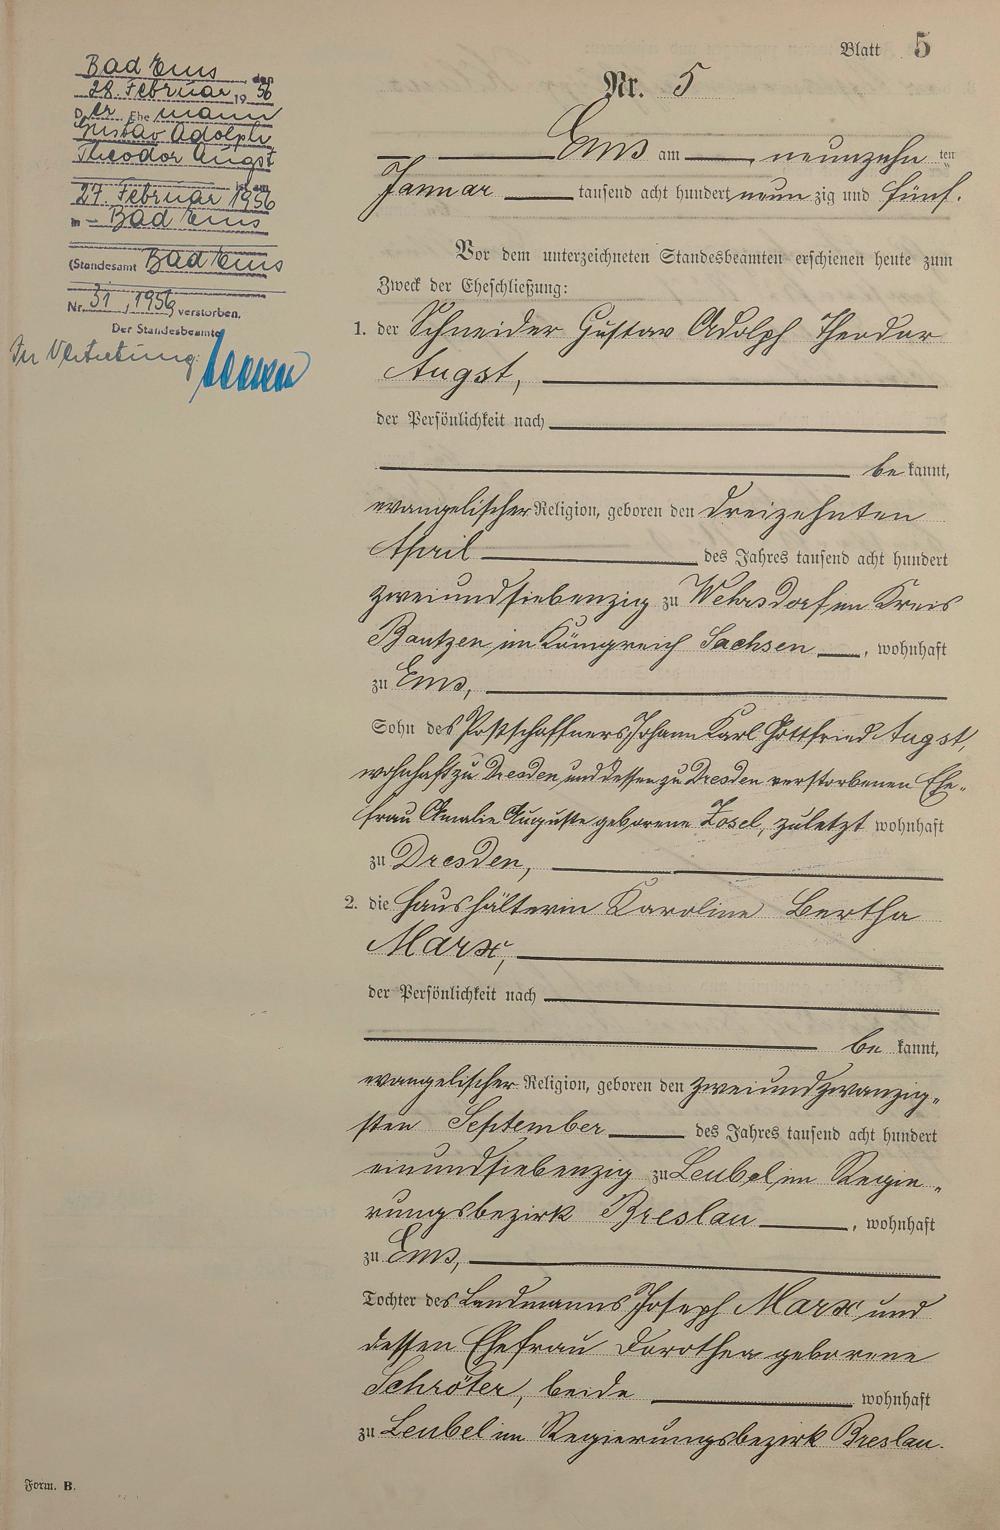 Blatt 5
Nr. 5
Ems am neunzehn ten
Januar tausend acht hundert neun zig und fünf.
Vor dem unterzeichneten Standesbeamten erschienen heute zum
Zweck der Eheschließung:
1. der Schneider Gustav Adolph Theodor
Augst,
der Persönlichkeit nach
be kannt,
evangelischer Religion, geboren den dreizehnten
April des Jahres tausend acht hundert
zweiundsiebenzig zu Wehrsdorf im Kreis
Bautzen im Königreich Sachsen, wohnhaft
zu Ems,
Sohn des Postschaffners Johann Karl Gottfried Augst,
wohnhaft zu Dresden und dessen zu Dresden verstorbenen Ehe-
frau Amalie Auguste geborene Zosel, zuletzt wohnhaft
zu Dresden,
2. die Haushälterin Karoline Bertha
Marx,
der Persönlichkeit nach
be kannt,
evangelischer Religion, geboren den zweiundzwanzig-
sten September des Jahres tausend acht hundert
einundsiebenzig zu Leubel im Regie-
rungsbezirk Breslau, wohnhaft
zu Ems,
Tochter des Landmanns Joseph Marx und
dessen Ehefrau Dorothea geborene
Schröter, beide wohnhaft
zu Leubel im Regierungsbezirk Breslau.
Bad Ems den
28. Februar 19 56
D er Ehe mann
Gustav Adolph
Theodor Augst
ist am
27. Februar 1956
in – Bad Ems
(Standesamt Bad Ems
Nr. 31, 1956 verstorben.
Der Standesbeamte
In Vertretung:
Form. B.